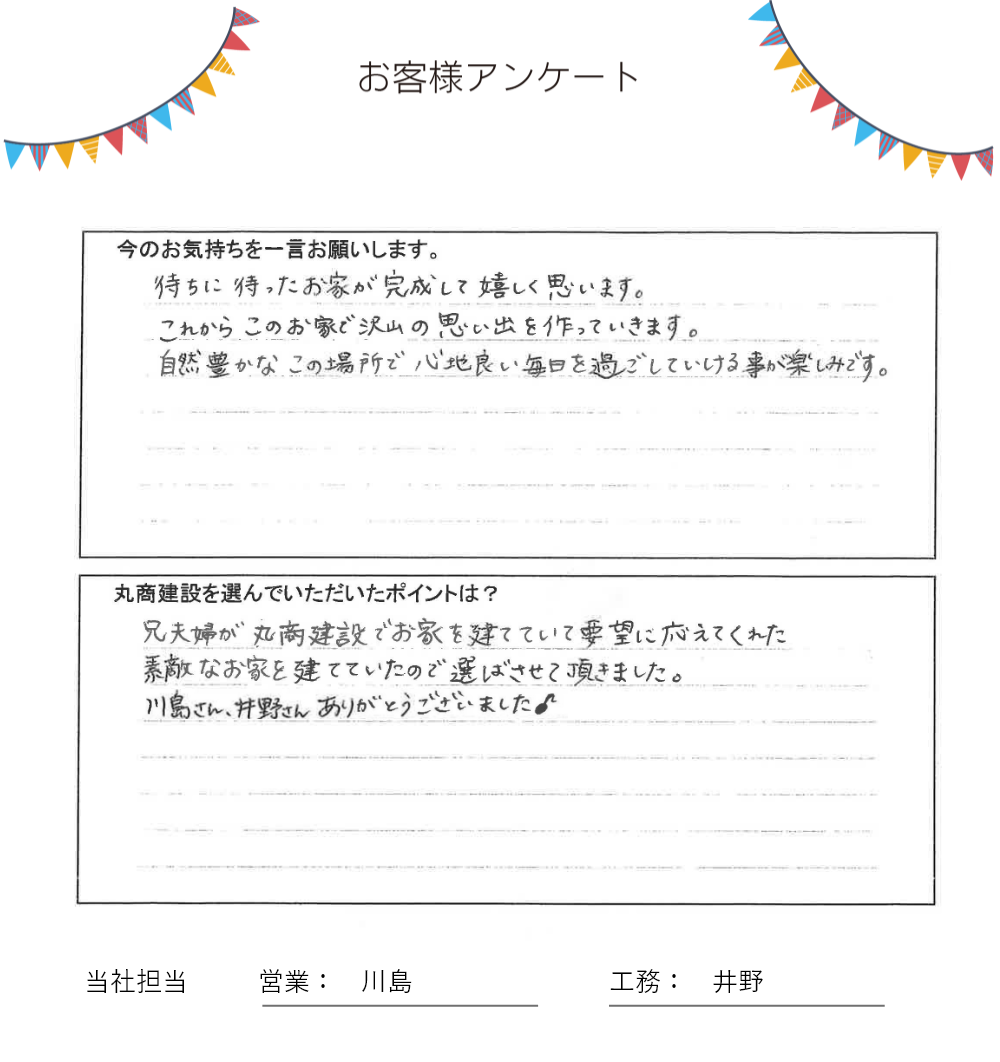 お客様アンケート
今のお気持ちを一言お願いします。
待ちに待ったお家が完成して嬉しく思います。
これからこのお家で沢山の思い出を作っていきます。
自然豊かなこの場所で心地良い毎日を過ごしていける事が楽しみです。
丸商建設を選んでいただいたポイントは？
兄夫婦が丸商建設でお家を建てていて要望に応えてくれた
素敵なお家を建てていたので選ばさせて頂きました。
川島さん、井野さんありがとうございました♪
当社担当 営業： 川島 工務： 井野